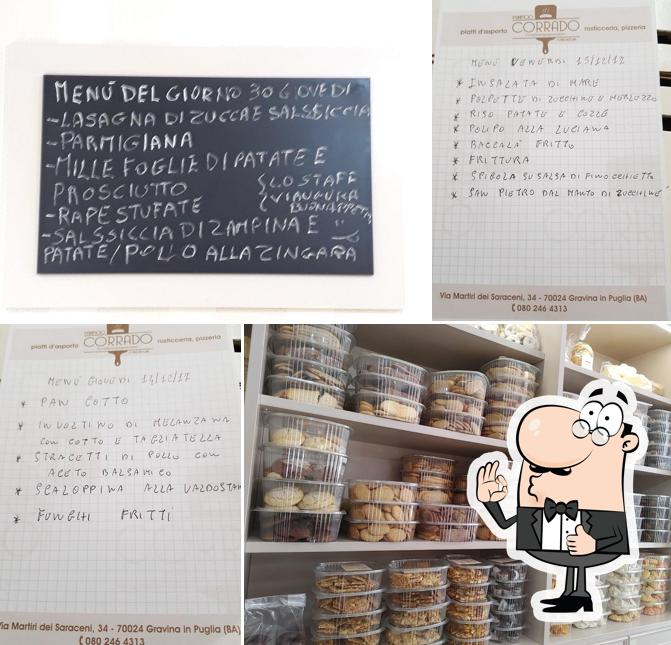 MENÚ DEL GIORNO 30 GIOVEDI
-LASAGNA DI ZUCCA E SALSSICCIA
-PARMIGIANA
-MILLE FOGLIE DI PATATE E
PROSCIUTTO
-RAPE STUFATE
LO STAFF
VI AUGURA
BUON APPETITO
-SALSSICCIA DI ZAMPINA E
PATATE/POLLO ALLA ZINGARA
PANIFICIO
piatti d'asporto CORRADO rosticceria, pizzeria
MENÚ VENERDI 15/12/17
* INSALATA DI MARE
* POLPETTE DI ZUCCHINE E MERLUZZO
* RISO PATATE E COZZE
* POLIPO ALLA LUCIANA
* BACCALA' FRITTO
* FRITTURA
* SPIGOLA SU SALSA DI FINOCCHIETTO
* SAN PIETRO DAL MANTO DI ZUCCHINE
Via Martiri dei Saraceni, 34 - 70024 Gravina in Puglia (BA)
080 246 4313
PANIFICIO
piatti d'asporto CORRADO rosticceria, pizzeria
MENÚ GIOVEDI 14/12/17
* PAN COTTO
* INVOLTINO DI MELANZANA
CON COTTO E TAGLIATELLA
* STRACETTI DI POLLO CON
ACETO BALSAMICO
* SCALOPPINA ALLA VALDOSTAN
* FUNGHI FRITTI
Via Martiri dei Saraceni, 34 - 70024 Gravina in Puglia (BA)
080 246 4313